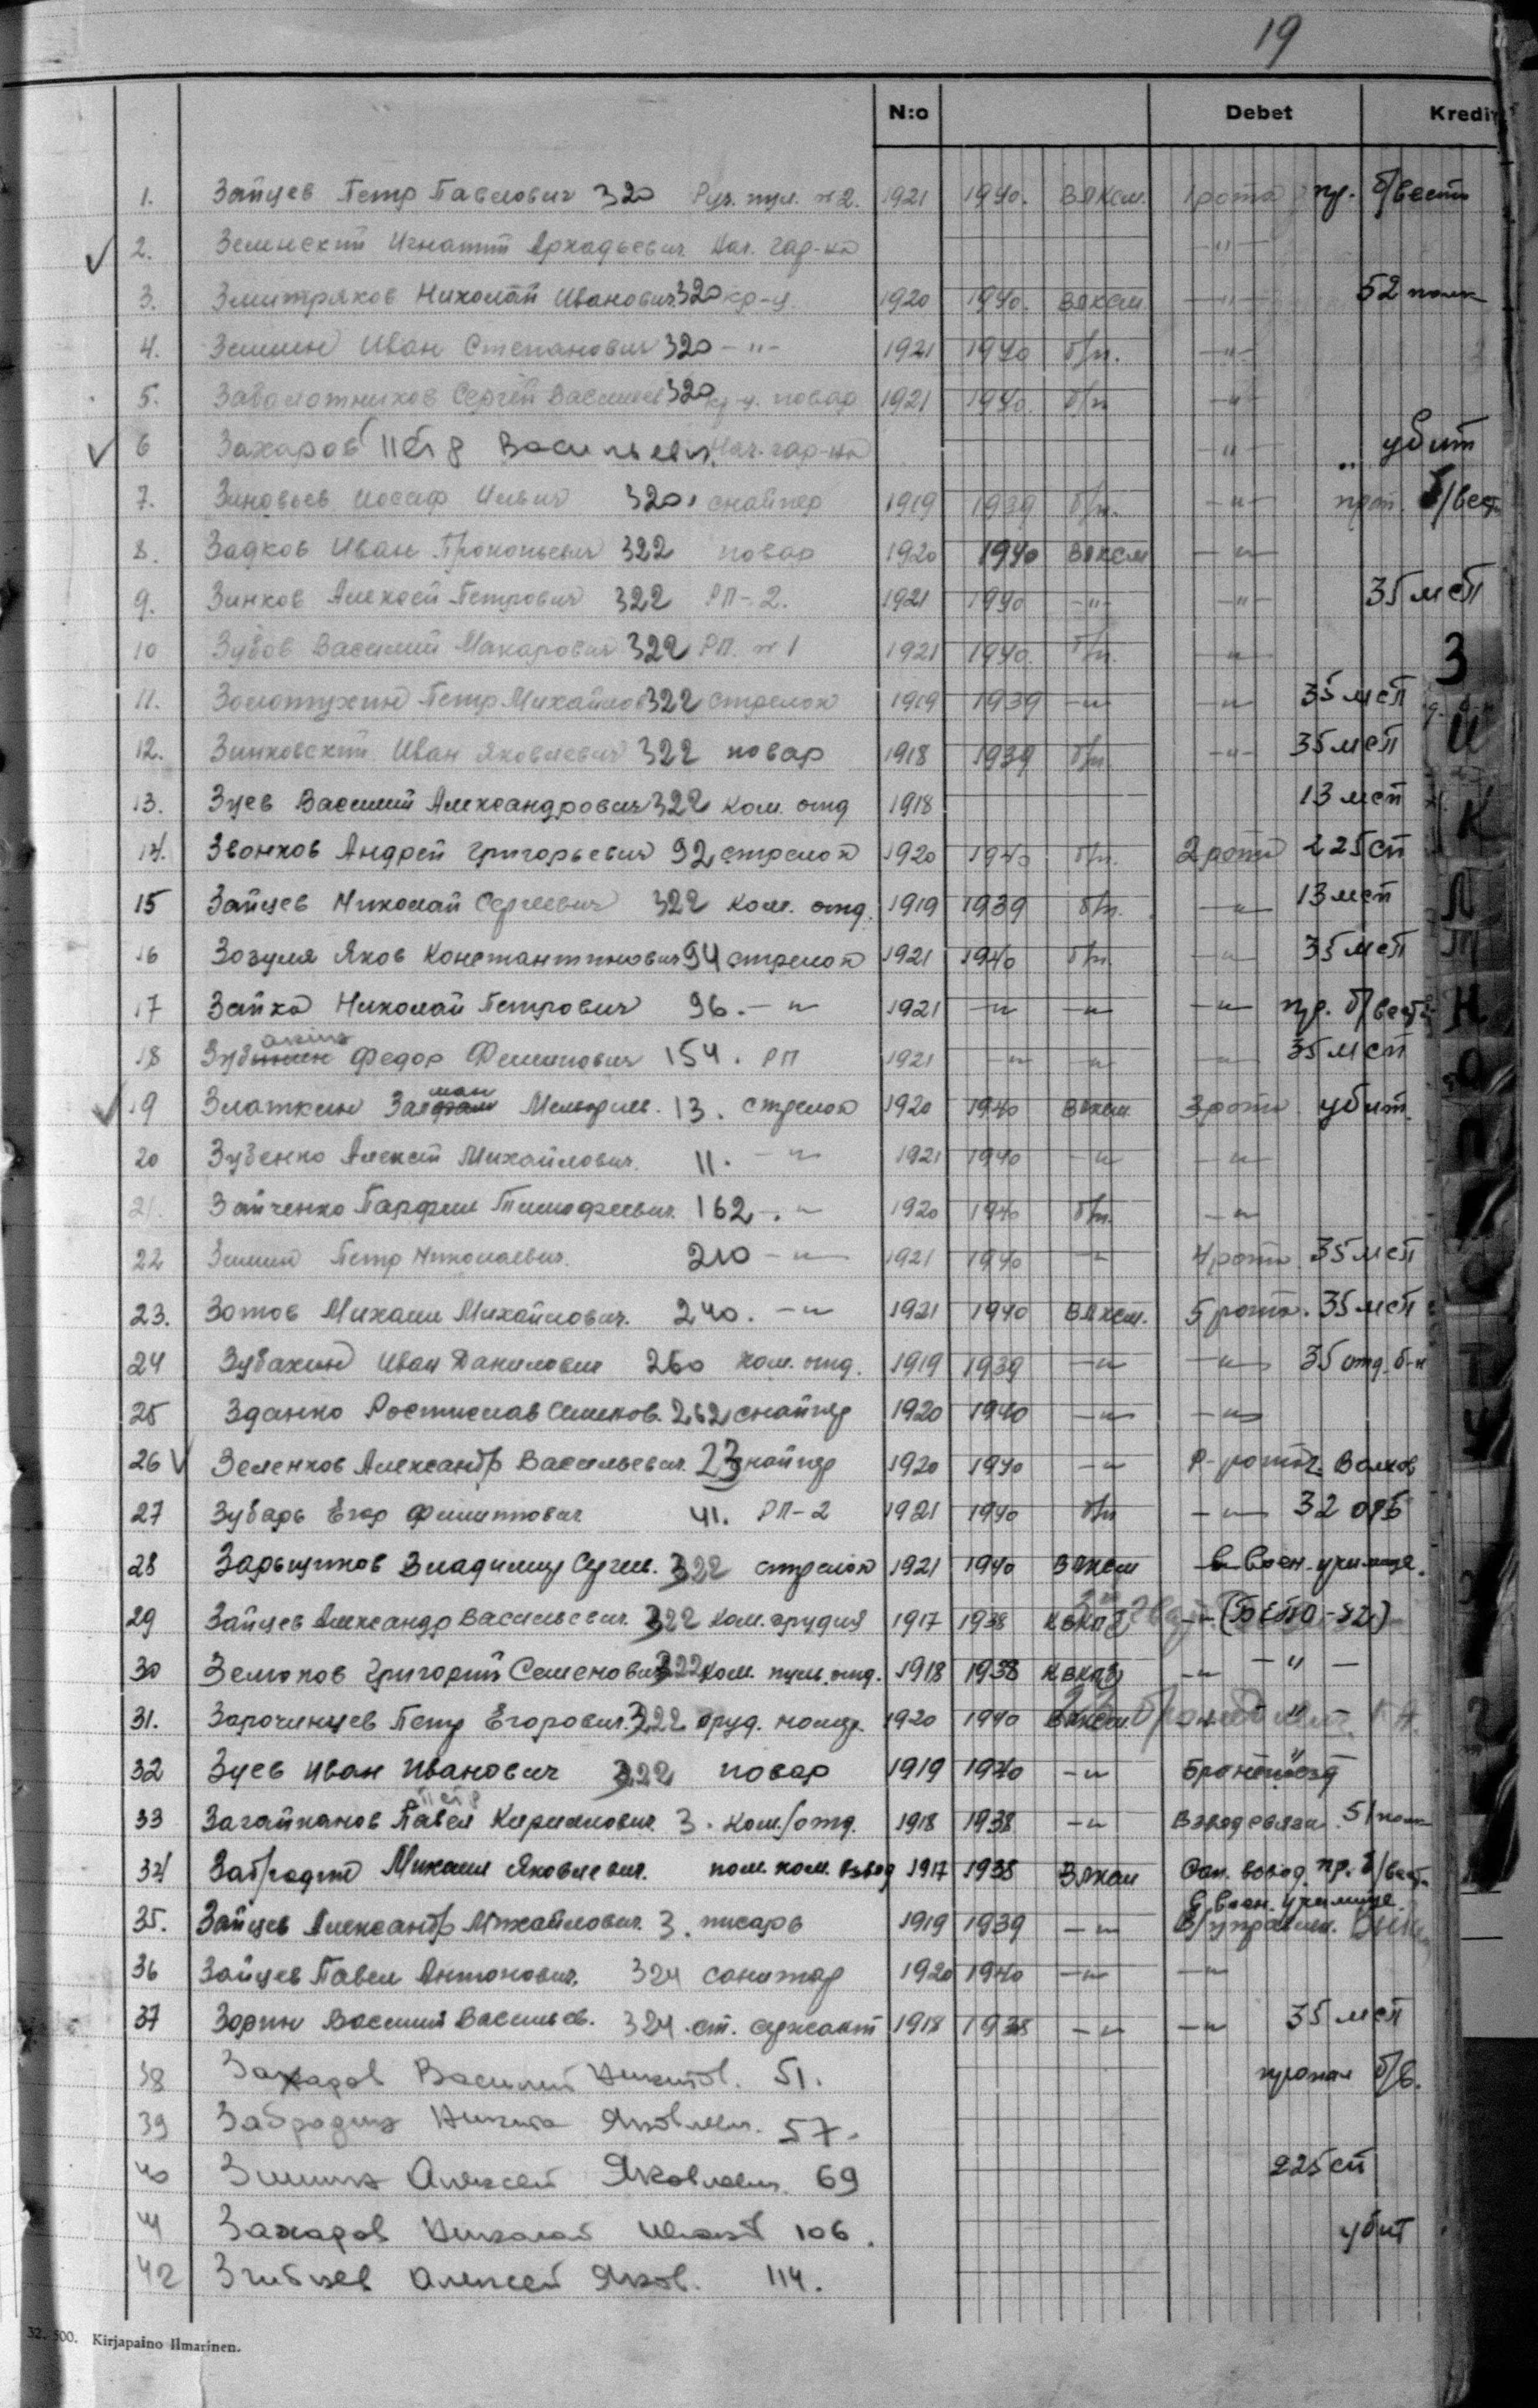 19
N:o Debet Kredit
1. Зайцев Петр Павлович 320 Руч. пул. №2. 1921 1940. ВЛКСМ. 1 рота пр. б/вести
2. Зеленский Игнатий Аркадьевич Нач. гар-на -"-
3. Змитряков Николай Иванович 320 кр-ц. 1920 1940. ВЛКСМ -"- 52 полк
4. Зимин Иван Степанович 320 -"- 1921 1940 б/п. -"-
5. Заболотников Сергей Васильев 320 кр-ц. повар 1921 1940. б/п -"-
6 Захаров Пётр Васильевич. Нач. гар-на -"- убит
7. Зиновьев Иосиф Ильич 320. снайпер 1919 1939 б/п. -"- проп. б/вест
8. Задков Иван Прокопьевич 322 повар 1920 1940 ВЛКСМ -"-
9. Зинков Алексей Петрович 322 РП-2. 1921 1940 -"- -"- 35 мсп
10 Зубов Василий Макарович 322 РП. №1 1921 1940. б/п. -"-
11. Золотухин Петр Михайлов 322 стрелок 1919 1939 -"- -"- 35 мсп
12. Зинковский Иван Яковлевич 322 повар 1918 1939 б/п. -"- 35 мсп
13. Зуев Василий Александрович 322 ком. отд 1918 13 мсп
14. Звонков Андрей Григорьевич 92 стрелок 1920 1940 б/п. 2 рота 225 сп
15 Зайцев Николай Сергеевич 322 ком. отд. 1919 1939 б/п. -"- 13 мсп
16 Зозуля Яков Константинович 94 стрелок 1921 1940 б/п. -"- 35 мсп
17 Зайка Николай Петрович 96. -"- 1921 -"- -"- -"- пр. б/вести
18 Зуб Федор Филиппович 154. РП 1921 -"- -"- -"- 35 мсп
19 Златкин Залман 13. стрелок 1920 1940 ВЛКСМ. 3 рота убит.
20 Зубенко Алексей Михайлович. 11. -"- 1921 1940 -"- -"-
21. Зайченко Парфил Тимофеевич. 162. -"- 1920 1940 б/п. -"-
22 Зимин Петр Николаевич. 210 -"- 1921 1940 -"- 4 рота. 35 мсп
23. Зотов Михаил Михайлович. 240. -"- 1921 1940 ВЛКСМ. 5 рота. 35 мсп
24 Зубахин Иван Данилович 260 ком. отд. 1919 1939 -"- -"- 35 отд. б-н
25 Зданко Ростислав 262 снайпер 1920 1940 -"- -"-
26 Зеленков Александр Васильевич. 23 снайпер 1920 1940 -"- Р-рота Волков
27 Зубарь Егор Филиппович 41. РП-2 1921 1940 б/п -"- 32 орб
28 Зарытиков Владимир Сергеев. 322 стрелок 1921 1940 ВЛКСМ в воен. училище.
29 Зайцев Александр Васильевич. 322 ком. орудия 1917 1938 -"-
30 Григорий Семенович 322 ком. пулем. отд. 1918 1938 -"- -"-
31. Зарочинцев Петр Егорович. 322 оруд. номер. 1920 1940 ВЛКСМ. -"-
32 Зуев Иван Иванович 322 повар 1919 1940 -"- Бронепоезд
33 Загайнанов Павел Петр 3. ком./отд. 1918 1938 -"- Взвод связи. 51 полк
34 Забродин Михаил Яковлевич. пом. ком. взвод 1917 1938 ВЛКСМ Сап. взвод. пр. б/вест.
35. Зайцев Александр Михайлович. 3. писарь 1919 1939 -"- в воен. училище. В/управлен.
36 Зайцев Павел Антонович. 324 санитар 1920 1940 -"- -"-
37 Зорин Василий Васильев. 324. ст. сержант 1918 1938 -"- -"- 35 мсп
38 Захаров Василий Никитов. 51. пропал б/в.
39 Забродин Никита Яковлевич. 57.
40 Зимин Алексей Яковлевич. 69 225 сп
41 Захаров Николай 106. убит
42 Алексей Яков. 114.
З
И
К
Л
М
Н
О
П
С
Т
У
32. 500. Kirjapaino Ilmarinen.